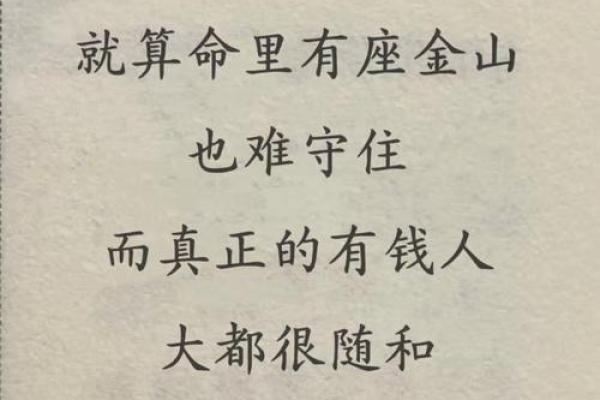 就算命里有座金山
也难守住
而真正的有钱人
大都很随和